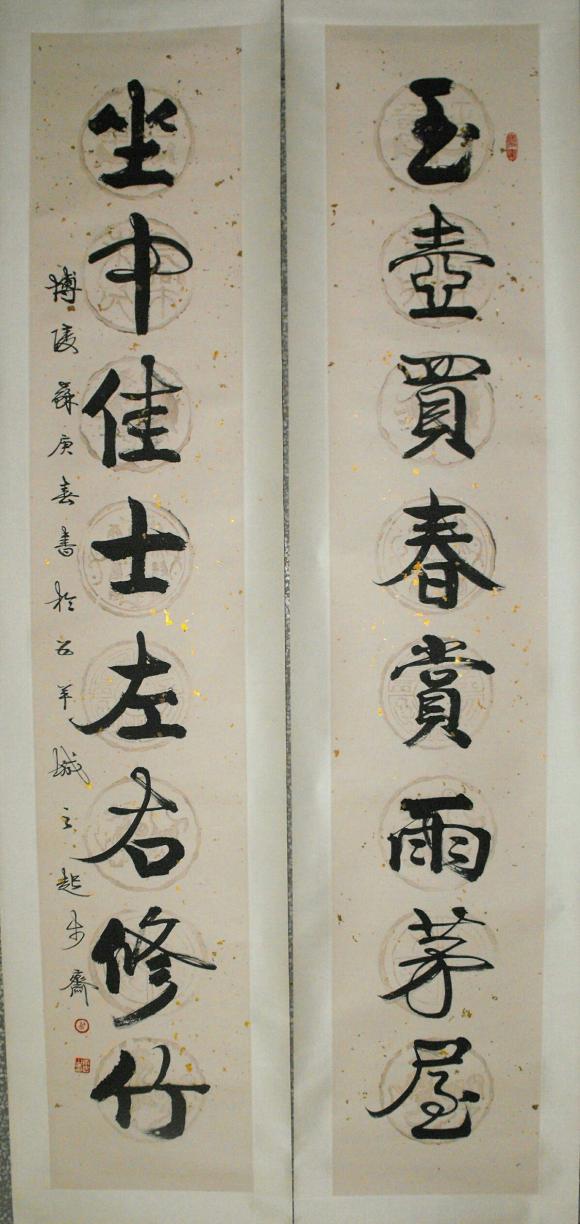 玉壺買春賞雨茅屋
坐中佳士左右修竹
博陵蘇庚春書於五羊城之起步齋